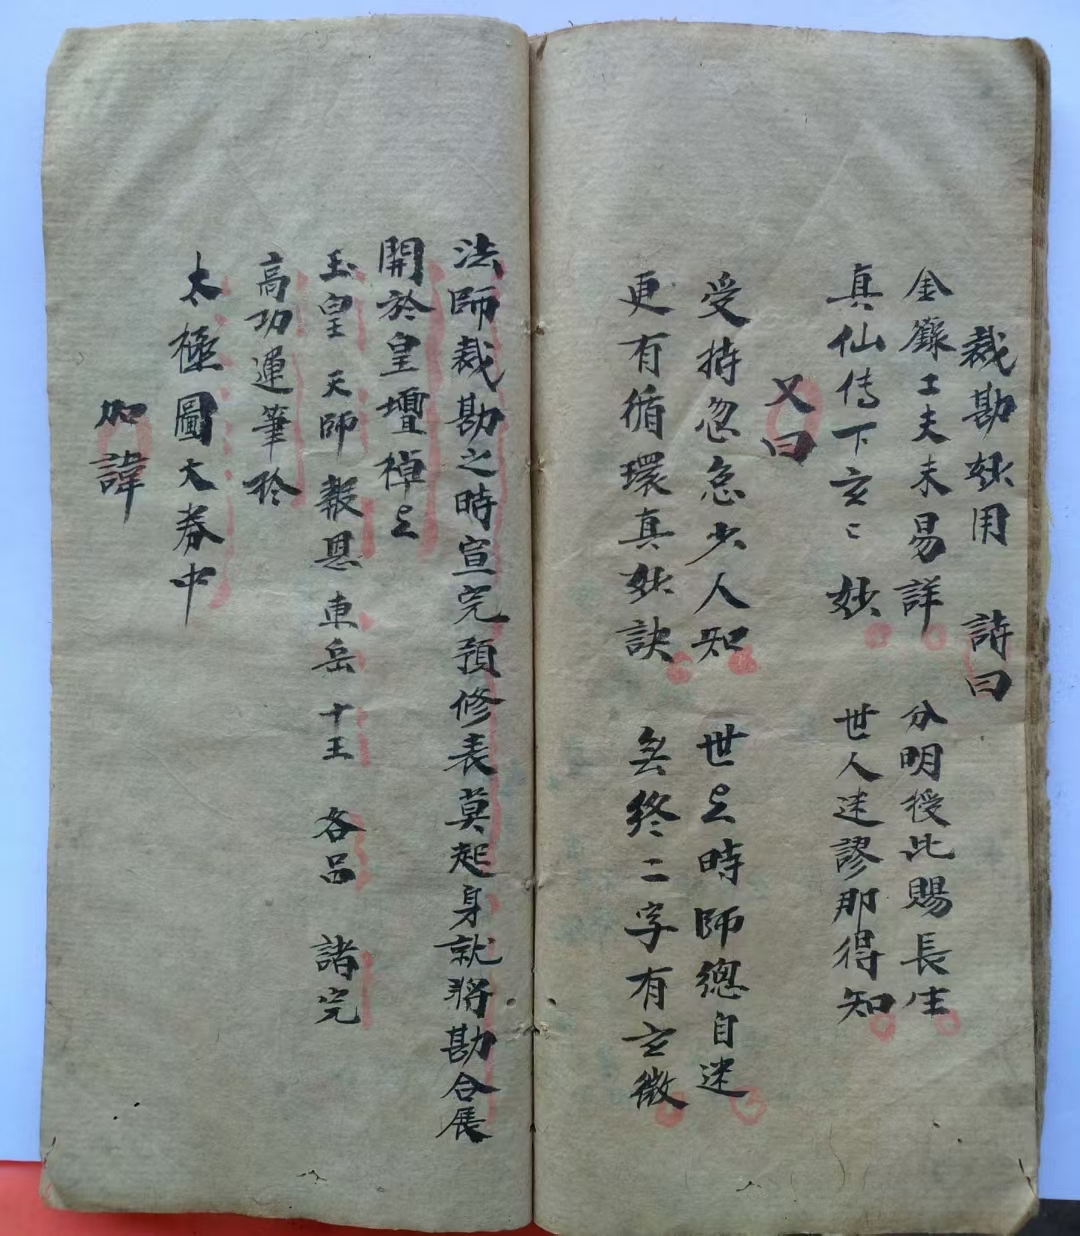 裁勘妙用　詩曰
金籙工夫未易詳　分明授比賜長生
真仙傳下玄〻妙　世人迷謬那得知
又曰
受持忽怠少人知　世上時師總自迷
更有循環真妙訣　玄終二字有玄微
法師裁勘之時宣完預修表莫起身就將勘合展
開於皇壇棹上
玉皇　天師　報恩　東岳　十王　各呂　諸完
高功運筆於
太極圖大券中
加諱